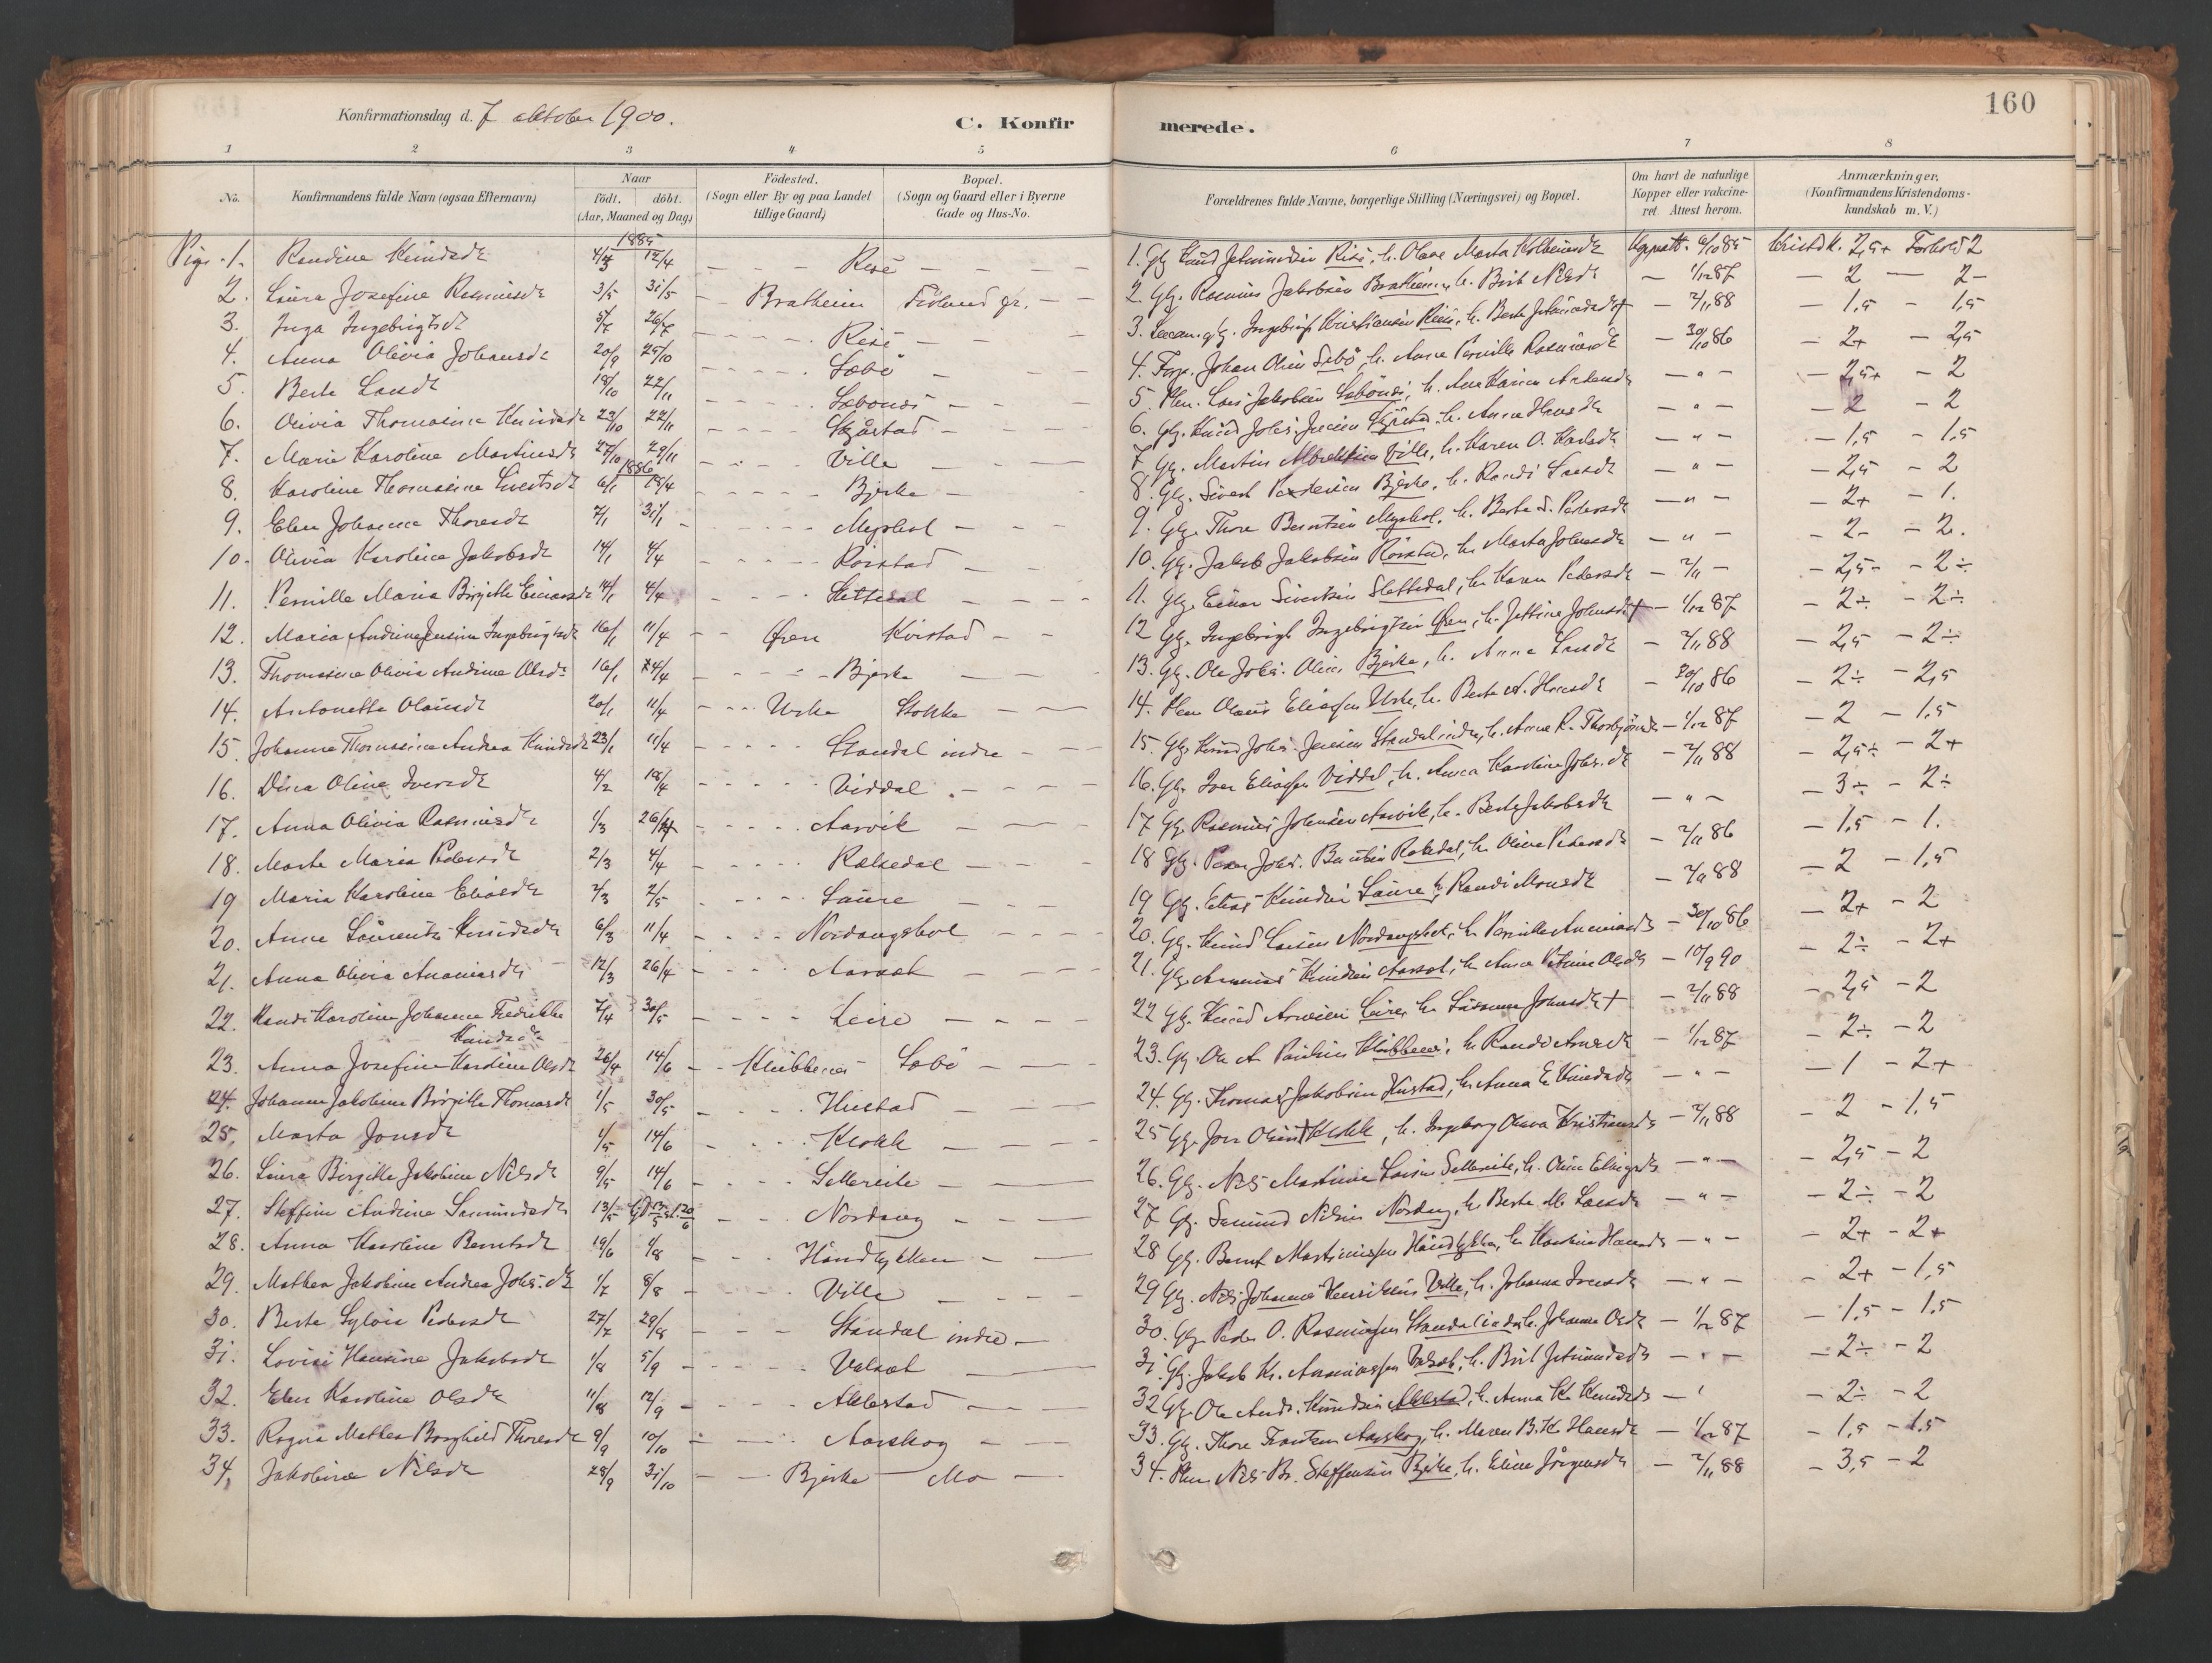 160
Konfirmationsdag d. 7 oktober 1900.
C. Konfirmerede.
1 2 3 4 5 6 7 8
No.
Konfirmandens fulde Navn (ogsaa Efternavn)
Naar
födt. döbt.
(Aar, Maaned og Dag)
Födested.
(Sogn eller By og paa Landet
tillige Gaard)
Bopæl.
(Sogn og Gaard eller i Byerne
Gade og Hus-No.
Forældrenes fulde Navne, borgerlige Stilling (Næringsvei) og Bopæl.
Om havt de naturlige
Kopper eller vakcine-
ret. Attest herom.
Anmærkninger.
(Konfirmandens Kristendoms-
kundskab m. V.)
1885
1. Randine Knudsdr 12/4 Rise
2. Laura Josefine Rasmusdr 3/5 31/5 Bratheim
3. Inga Ingebrigtsdr 5/7 26/7 Rise
4. Anna Olivia Johansdr 20/9 25/10 Sæbö
5. Berte Larsdr 18/10 22/11
6. Olivia Thomasine Knudsdr 23/10 22/11 Skjåstad
7. Marie Karoline Martinusdr 27/10 29/11 Ville
1886
8. Karoline Thomasine Sivertsdr 6/1 18/4 Bjerke
9. Elen Johanne Thoresdr 7/1 31/1 Myrhol
10. Olivia Karoline Jakobsdr 14/1 4/4 Rörstad
11. Pernille Maria Birgitte Einarsdr 14/1 4/4 Slettedal
12. Maria Andrine Jensine Ingebrigtsdr 16/1 11/4 Ören Kvistad
13. Thomasine Olivia Andrine Olsdr 16/1 4/4 Bjerke
14. Antonette Olausdr 20/1 11/4 Urke Stokke
15. Johanne Thomasine Andrea Knudsdr 23/1 11/4 Standal indre
16. Dina Oline Iversdr 4/2 18/4 Viddal
17. Anna Olivia Rasmusdr 1/3 26/4 Aarvik
18. Marte Maria Pedersdr 2/3 4/4 Rakedal
19 Maria Karoline Eliasdr 2/3 2/5 Saure
20. Anne Laurentse Knudsdr 6/3 11/4 Nordangshol
21. Anna Olivia Ananiasdr 12/3 26/4 Aarsæt
22. Randi Karoline Johanne Fredrikke Knudsdr 7/4 30/5 Leire
23. Anna Josefine Karoline Olsdr 26/4 14/6 Klubbenes Sæbö
24. Johanne Jakobine Birgitte Thomasdr 1/5 30/5 Hustad
25. Marta Jonsdr 1/5 14/6 Klokk
26. Laura Birgitte Jakobine Nilsdr 9/5 14/6 Sellereite
27. Steffine Andrine Samundsdr 13/5 Nordang
28. Anna Karoline Berntsdr 19/6 1/8 Håndlykken
29. Mathea Jakobine Andrea Johs.dr 1/7 8/8 Ville
30. Berte Sylvia Pedersdr 27/7 29/8 Standal indre
31. Lovise Hansine Jakobsdr 1/8 5/9 Valsæt
32. Elen Karoline Olsdr 11/8 12/9 Aklestad
33. Ragna Mathea Borghild Thoresdr 9/9 10/10 Aarskog
34. Jakobine Nilsdr 28/9 31/10 Bjerke Mo
1. Gbr Knud Rise, h. Olave Marta Kristk. 2,5+ Forhold 2
2. Gbr. Rasmus Jakobsen Bratheim, h. Brit Nilsdr 1/12 87 2 2-
3. Ingebrigt Kristiansen Rise, h. Berte 2/11 88 1,5 1,5
4. Johan Olsen Sæbö, h. Anne Pernille Rasmusdr 30/10 86 2+ 2,5
5. Lars Jakobsen h. Ane Karine 2,5+ 2
6. Gbr. Knud Johs. Jensen h. Anne Hansdr 2 2
7. Gbr. Martin Ville, h. Karen O. Karlsdr 1,5 1,5
8. Gbr. Sivert Bjerke, h. Randi Larsdr 2,5 2
9. Gbr. Thore Berntsen Myrhol, h. Berte S. Pedersdr 2+ 1.
10. Gbr. Jakob Jakobsen Rörstad, h. Marta Johnsdr 2- 2.
11. Gbr. Einar Sivertsen Slettedal, h. Karen Pedersdr 2/11 2,5- 2÷
12. Gbr. Ingebrigt Ingebrigtsen Ören, h. Jettine Johnsdr + 1/12 87 2÷ 2÷
13. Gbr. Ole Johs. Olsen Bjerke, h. Anne Larsdr 2/11 88 2,5 2÷
14. Olaus Eliassen Urke, h. Berte A. Hansdr 30/10 86 2÷ 2,5
15. Gbr. Knud Johs. Jensen Standal indre, h. Anne R. Thorbjörnsdr 1/12 87 2 1,5
16. Gbr. Iver Eliassen Viddal, h. Anna Karoline Johs.dr 2/11 88 2,5÷ 2+
17. Gbr. Rasmus Johnsen Aarvik, h. Berte Jakobsdr 3÷ 2÷
18. Gbr. Peder Johs. Berntsen Rakedal, h. Oline Pedersdr 2/11 86 1,5 1.
19. Gbr. Elias Knudsen Saure, h. Randi Monsdr 2/11 88 2 1,5
20. Gbr. Knud Larsen Nordangshol, h. Pernille Ananiasdr 30/10 86 2+ 2
21. Gbr. Ananias Knudsen Aarsæt, h. Anne Petrine Olsdr 10/9 90 2÷ 2+
22. Gbr. Knud Leire, h. Johnsdr + 2/11 88 2,5 2
23. Gbr. Ole A. Paulsen Klubbenes, h. Randi 1/12 87 2÷ 2
24. Gbr. Thomas Jakobsen Hustad, h. Anna E. Knudsdr 1 2+
25. Gbr. Jon Olsen Klokk, h. Ingeborg Olava Kristiansdr 2/11 88 2 1,5
26. Gbr. Nils Martinus Larsen Sellereite, h. Oline 2,5 2
27. Gbr. Samund Nilsen Nordang, h. Berte M. Larsdr 2÷ 2
28. Gbr. Bernt Martinussen Håndlykken, h. Karoline Hansdr 2+ 2+
29. Gbr. Nils Johannes Henriksen Ville, h. Johanne Iversdr 2+ 1,5
30. Gbr. Peder O. Rasmussen Standal indre, h. Johanne Olsdr 1/12 87 1,5 1,5
31. Gbr. Jakob Kr. Ananiassen Valsæt, h. Brit 2÷ 2
32. Gbr. Ole Andr. Knudsen Aklestad, h. Anna K. Knudsdr 2÷ 2
33. Gbr. Thore Frantsen Aarskog, h. Maren B. K. Hansdr 1/12 87 1,5 1,5
34. Nils Br. Steffensen Bjerke, h. Eline Jörgensdr 2/11 88 3,5 2